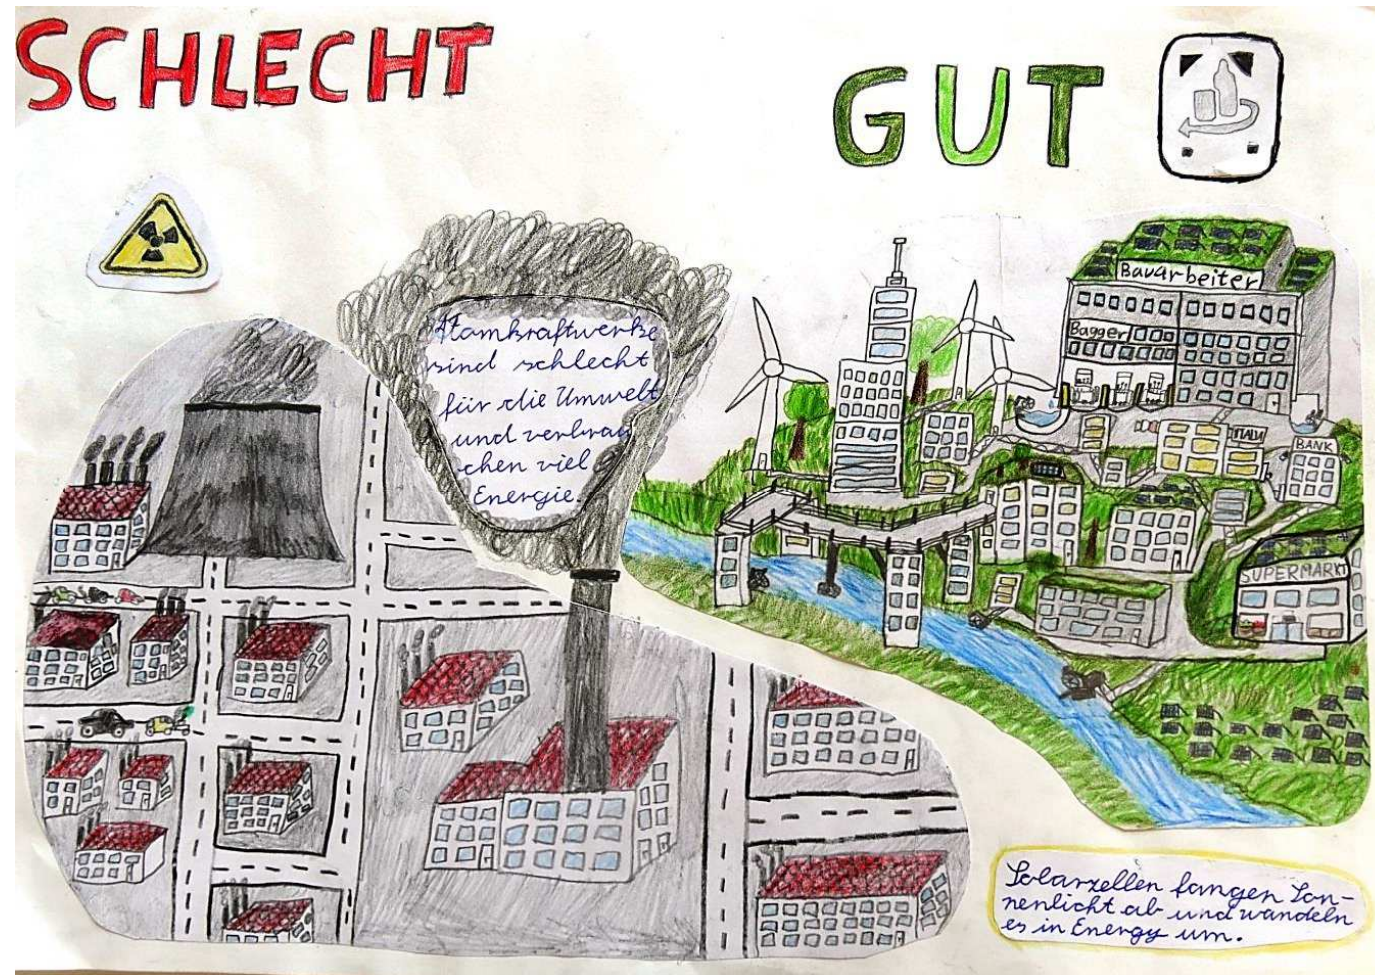 SCHLECHT
GUT
Atomkraftwerke
sind schlecht
für die Umwelt
und verbrau
chen viel
Energie.
Bauarbeiter
Bagger
ITALIA
BANK
SUPERMARKT
Solarzellen fangen Son-
nenlicht ab und wandeln
es in Energy um.